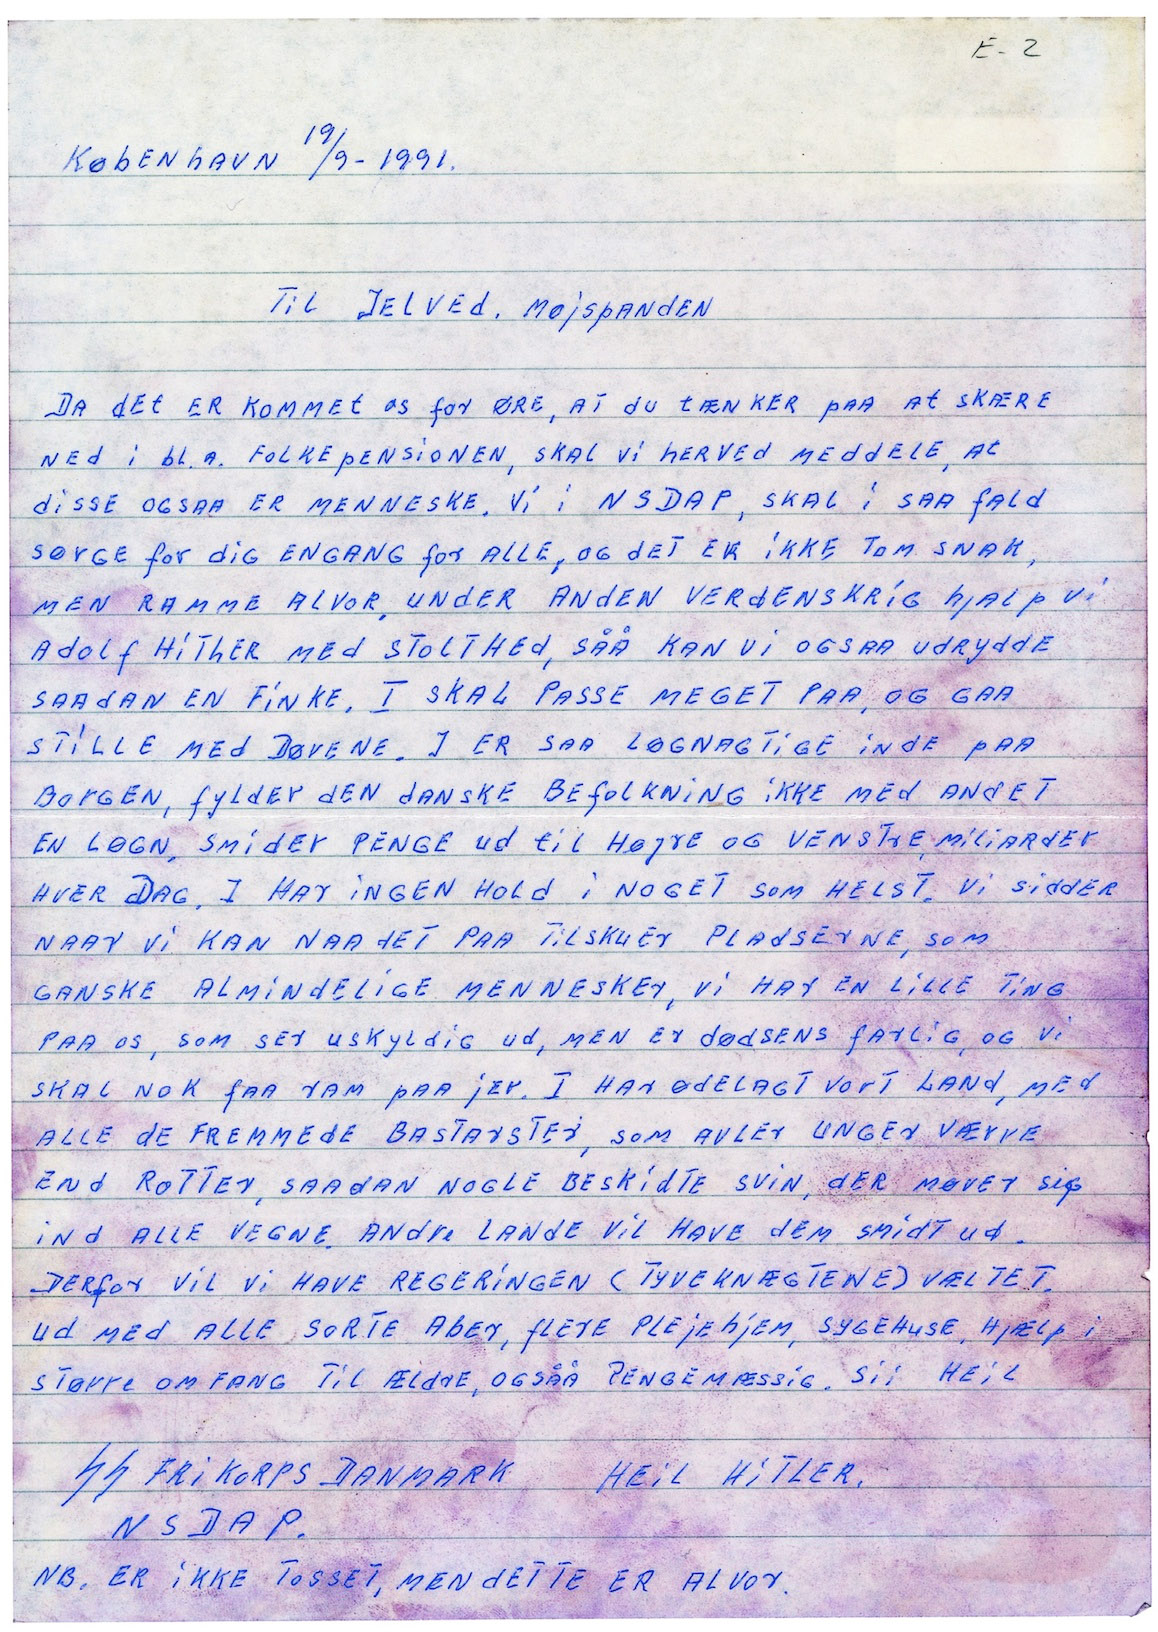 E-2
København 19/9-1991.
Til Jelved. Møjspanden
Da det er kommet os for øre, at du tænker paa at skære
ned i bl.a. folkepensionen, skal vi herved meddele, at
disse ogsaa er menneske. Vi i NSDAP, skal i saa fald
sørge for dig engang for alle, og det er ikke tom snak,
men ramme alvor, under anden verdenskrig hjalp vi
Adolf Hither med stolthed, såå kan vi ogsaa udrydde
saadan en finke. I skal passe meget paa, og gaa
stille med døvene. I er saa løgnagtige inde paa
Borgen, fylder den danske befolkning ikke med andet
en løgn, smider penge ud til højre og venstre, miliarder
hver dag. I har ingen hold i noget som helst. Vi sidder
naar vi kan naa det paa tilskuer pladserne, som
ganske almindelige mennesker, vi har en lille ting
paa os, som ser uskyldig ud, men er dødsens farlig, og vi
skal nok faa ram paa jer. I har ødelagt vort land, med
alle de fremmede bastarster, som avler unger værre
end rotter, saadan nogle beskidte svin, der møver sig
ind alle vegne. Andre lande vil have dem smidt ud.
Derfor vil vi have regeringen (tyveknægtene) væltet.
ud med alle sorte aber, flere plejehjem, sygehuse, hjælp i
større omfang til ældre, ogsåå pengemæssig. Sii Heil
SS Frikorps Danmark Heil Hitler.
NSDAP.
NB. er ikke tosset, men dette er alvor.